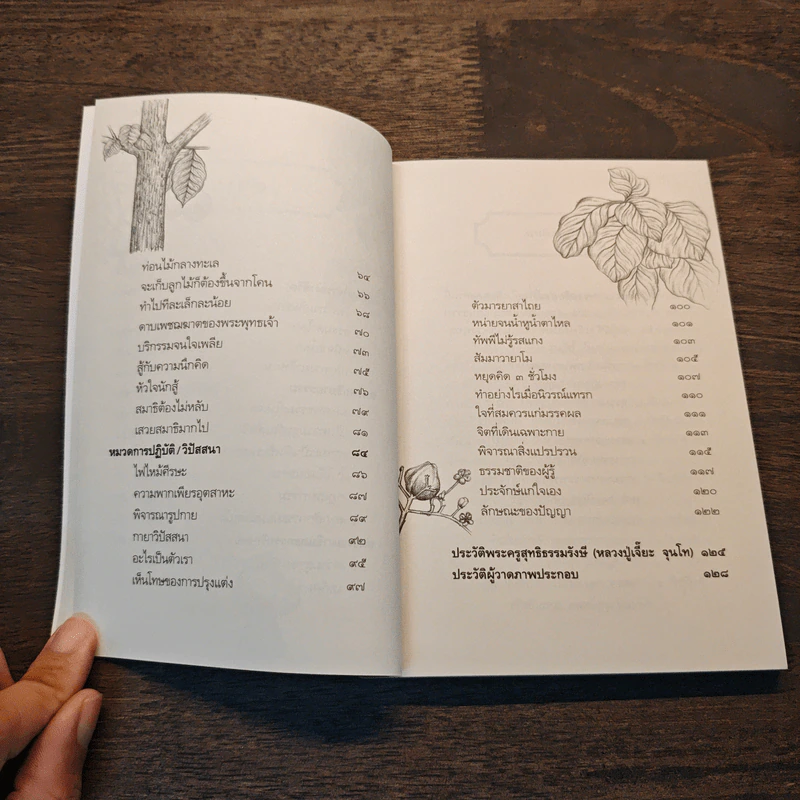 ท่อนไม้กลางทะเล ๖๔
จะเก็บลูกไม้ก็ต้องขึ้นจากโคน ๖๖
ทำไปทีละเล็กละน้อย ๖๘
ดาบเพชฌฆาตของพระพุทธเจ้า ๗๐
บริกรรมจนใจเพลีย ๗๓
สู้กับความนึกคิด ๗๕
หัวใจนักสู้ ๗๖
สมาธิต้องไม่หลับ ๗๙
เสวยสมาธิมากไป ๘๑
หมวดการปฏิบัติ/วิปัสสนา ๘๔
ไฟไหม้ศีรษะ ๘๖
ความพากเพียรอุตสาหะ ๘๗
พิจารณารูปกาย ๘๙
กายาวิปัสสนา ๙๒
อะไรเป็นตัวเรา ๙๕
เห็นโทษของการปรุงแต่ง ๙๗
ตัวมารยาสาไถย ๑๐๐
หน่ายจนน้ำหูน้ำตาไหล ๑๐๑
ทัพพีไม่รู้รสแกง ๑๐๓
สัมมาวายาโม ๑๐๕
หยุดคิด ๓ ชั่วโมง ๑๐๗
ทำอย่างไรเมื่อนิวรณ์แทรก ๑๑๐
ใจที่สมควรแก่มรรคผล ๑๑๑
จิตที่เดินเฉพาะกาย ๑๑๓
พิจารณาสิ่งแปรปรวน ๑๑๕
ธรรมชาติของผู้รู้ ๑๑๗
ประจักษ์แก่ใจเอง ๑๒๐
ลักษณะของปัญญา ๑๒๒
ประวัติพระครูสุทธิธรรมรังษี (หลวงปู่เจี๊ยะ จุนโท) ๑๒๕
ประวัติผู้วาดภาพประกอบ ๑๒๘